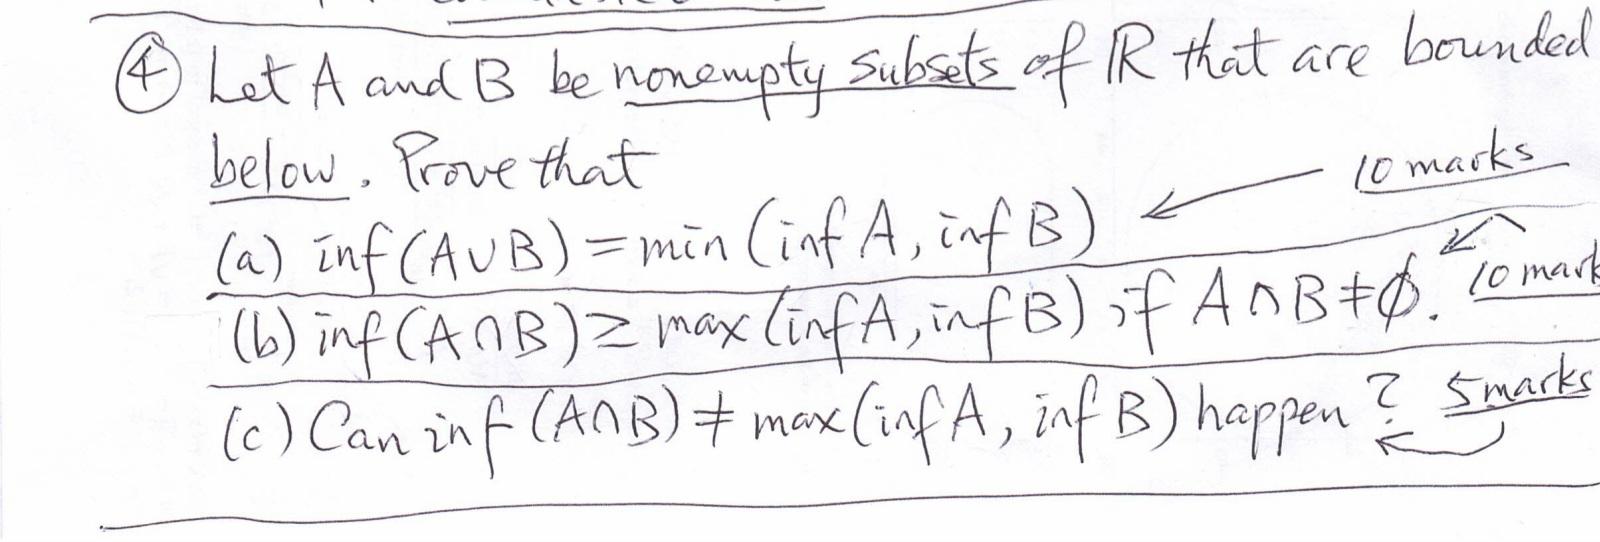 ④ Let A and B be nonempty subsets of ℝ that are bounded
below. Prove that
10 marks
(a) inf(A∪B) = min(inf A, inf B)
(b) inf(A∩B) ≥ max(inf A, inf B) if A∩B ≠ ∅. 10 mark
(c) Can inf(A∩B) ≠ max(inf A, inf B) happen? 5 marks